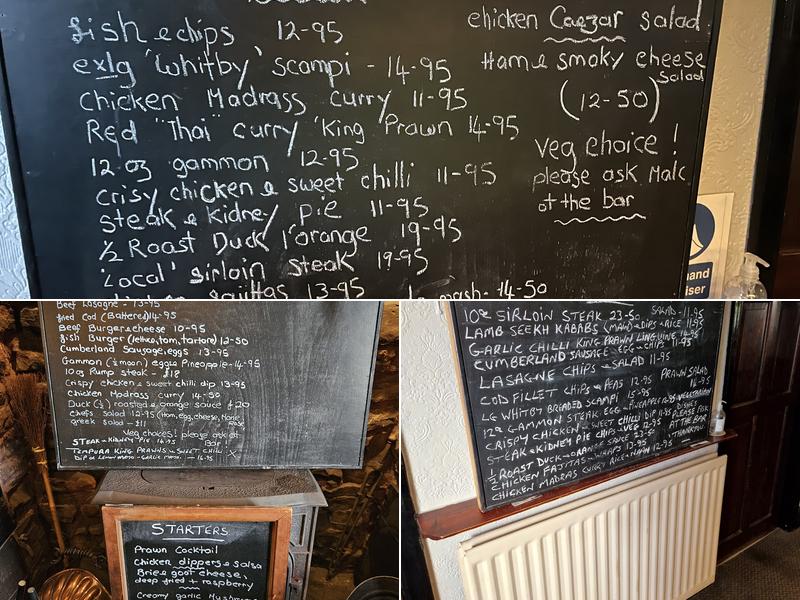 fish & chips 12-95
exlg 'Whitby' scampi - 14-95
Chicken Madrass curry 11-95
Red "Thai" curry 'King Prawn 14-95
12 oz gammon 12-95
Crisy chicken & sweet chilli 11-95
steak & kidney pie 11-95
½ Roast Duck l'orange 19-95
'Local' sirloin steak 19-95
13-95 14-50
chicken Caezar salad
Ham & smoky cheese
Salad
(12-50)
veg choice !
please ask Malc
at the bar
Beef Lasagne - 13-95
fried Cod (Battered) 14-95
Beef Burger & cheese 10-95
fish Burger (lettuce, tom, tartare) 12-50
Cumberland Sausage, eggs 13-95
Gammon (½ moon) egg & Pineapple - 14-95
10oz Rump steak - £18
Crispy chicken & sweet chilli dip 13-95
Chicken Madras curry 14-50
Duck (½) roasted & orange sauce £20
chefs salad 12-95 (Ham, egg, cheese,
greek salad - £11
Veg choices! please ask at
Bar
STEAK & KIDNEY PIE 14.95
TEMPURA KING PRAWNS & SWEET CHILLI
STARTERS
Prawn Cocktail
Chicken dippers & salsa
Brie & goat cheese,
deep fried + raspberry
Creamy garlic Mushrooms
10oz SIRLOIN STEAK 23-50 SALADS - 11-95
LAMB SEEKH KABABS (MAIN) & DIPS & RICE 11-95
GARLIC CHILLI KING PRAWN LINGUINE 14-95
CUMBERLAND SAUSAGE - EGG - CHIPS 11-95
LASAGNE CHIPS & SALAD 11-95
COD FILLET CHIPS & PEAS 12-95 PRAWN SALAD
LG WHITBY BREADED SCAMPI 15-95
12oz GAMMON STEAK. EGG - PINEAPPLE VEGETARIAN
CRISPY CHICKEN - SWEET CHILLI DIP 11-95 PLEASE ASK
STEAK & KIDNEY PIE CHIPS & VEG 12-95 AT THE BAR
½ ROAST DUCK - ORANGE SAUCE 23-50 THANKYOU.
CHICKEN FAJITAS - WRAPS 13-95
CHICKEN MADRAS CURRY RICE & NAAN 12-95